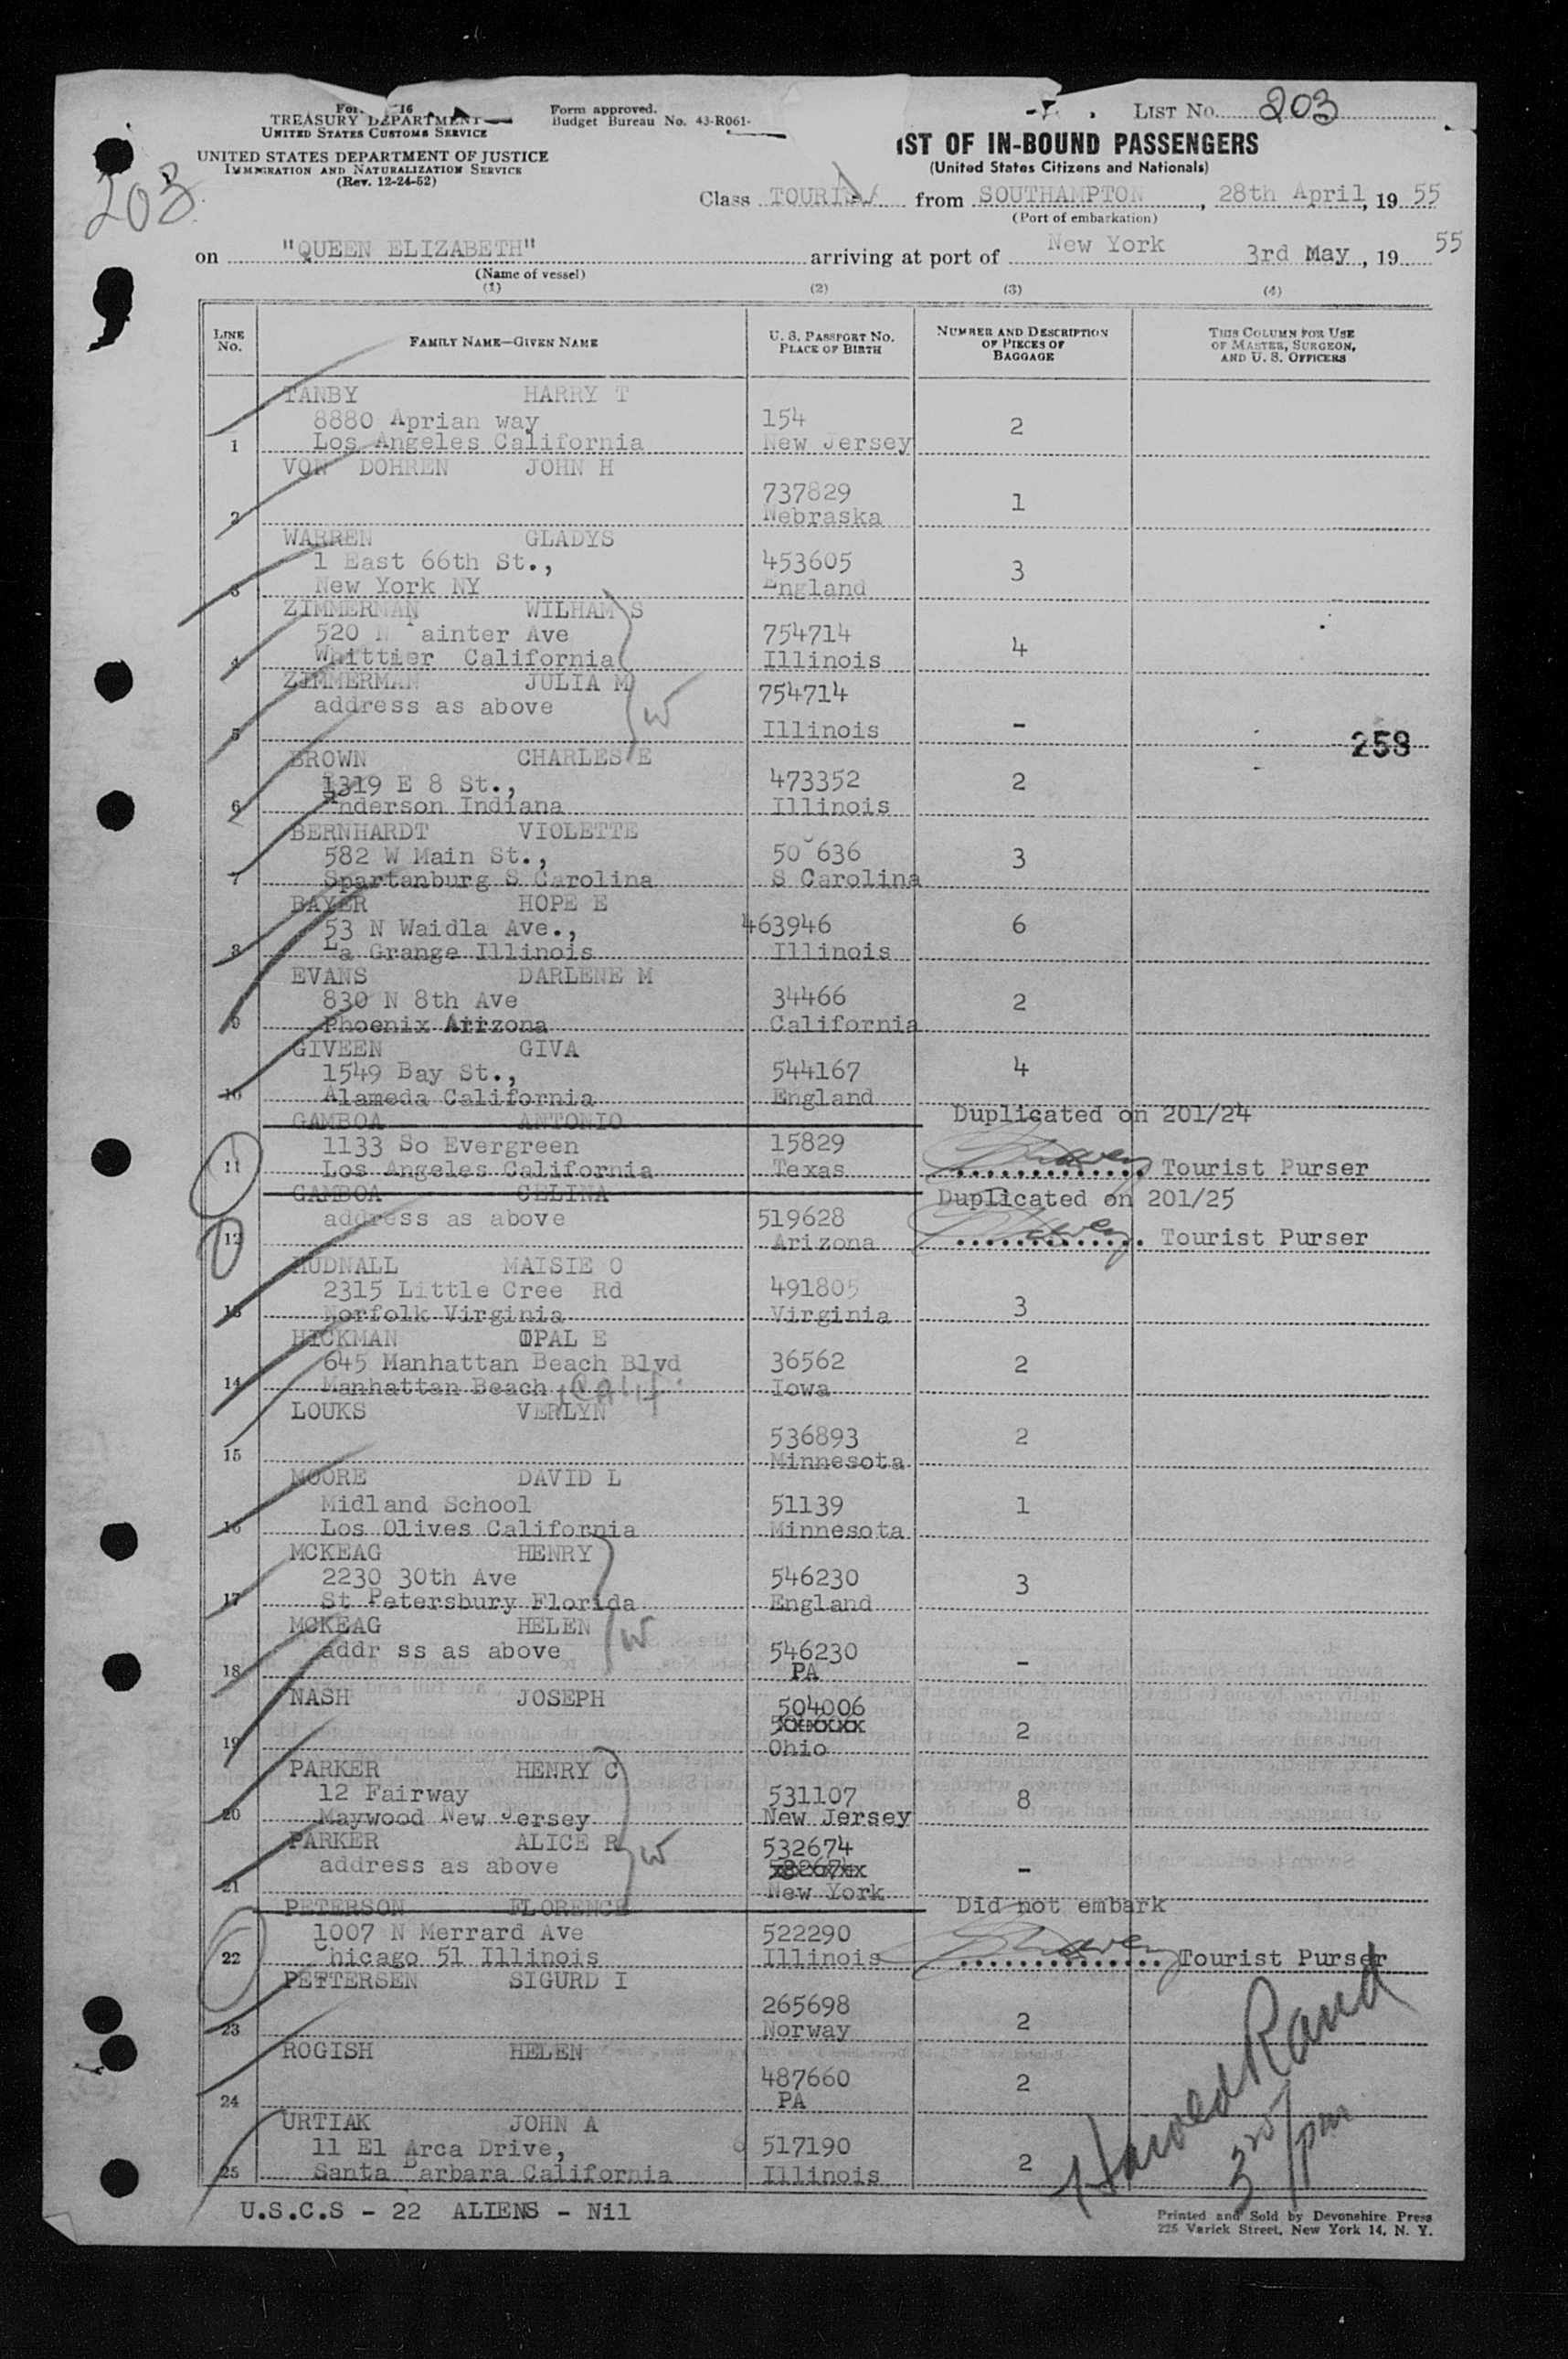 203
TREASURY DEPARTMENT
UNITED STATES CUSTOMS SERVICE
UNITED STATES DEPARTMENT OF JUSTICE
IMMIGRATION AND NATURALIZATION SERVICE
(Rev. 12-24-52)
Form approved.
Budget Bureau No. 43-R061-
LIST No. 203
IST OF IN-BOUND PASSENGERS
(United States Citizens and Nationals)
Class TOURIST from SOUTHAMPTON, 28th April, 19 55
(Port of embarkation)
on "QUEEN ELIZABETH" arriving at port of New York 3rd May, 19 55
(Name of vessel)
(1) (2) (3) (4)
LINE No. FAMILY NAME—GIVEN NAME U. S. PASSPORT No. PLACE OF BIRTH NUMBER AND DESCRIPTION OF PIECES OF BAGGAGE THIS COLUMN FOR USE OF MASTER, SURGEON, AND U. S. OFFICERS
TANBY HARRY T
8880 Aprian way 154 2
1 Los Angeles California New Jersey
VON DOHREN JOHN H
737829 1
2 Nebraska
WARREN GLADYS
1 East 66th St., 453605 3
3 New York NY England
ZIMMERMAN WILHAM S
520 N Painter Ave 754714 4
4 Whittier California Illinois
ZIMMERMAN JULIA M 754714
address as above W
5 Illinois - 258
BROWN CHARLES E
1319 E 8 St., 473352 2
6 Anderson Indiana Illinois
BERNHARDT VIOLETTE
582 W Main St., 50 636 3
7 Spartanburg S Carolina S Carolina
BAYER HOPE E
53 N Waidla Ave., 463946 6
8 La Grange Illinois Illinois
EVANS DARLENE M
830 N 8th Ave 34466 2
9 Phoenix Arizona California
GIVEEN GIVA
1549 Bay St., 544167 4
10 Alameda California England
GAMBOA ANTONIO Duplicated on 201/24
1133 So Evergreen 15829
11 Los Angeles California Texas Tourist Purser
GAMBOA CELINA Duplicated on 201/25
address as above 519628
12 Arizona Tourist Purser
HUDNALL MAISIE O
2315 Little Cree Rd 491805
13 Norfolk Virginia Virginia 3
HICKMAN OPAL E
645 Manhattan Beach Blvd 36562 2
14 Manhattan Beach, Calif. Iowa
LOUKS VERLYN
536893 2
15 Minnesota
MOORE DAVID L
Midland School 51139 1
16 Los Olives California Minnesota
MCKEAG HENRY
2230 30th Ave 546230 3
17 St Petersbury Florida England
MCKEAG HELEN
addr ss as above W 546230
18 PA -
NASH JOSEPH 504006
xxxxxx
19 Ohio 2
PARKER HENRY C
12 Fairway 531107 8
20 Maywood New Jersey New Jersey
PARKER ALICE R 532674
address as above W -
21 New York
PETERSON FLORENCE Did not embark
1007 N Merrard Ave 522290
22 Chicago 51 Illinois Illinois Tourist Purser
PETTERSEN SIGURD I
265698
23 Norway 2
ROGISH HELEN
487660 2
24 PA
URTIAK JOHN A
11 El Arca Drive, 517190 2
25 Santa Barbara California Illinois
Harold Rand
U.S.C.S - 22 ALIENS - Nil
Printed and Sold by Devonshire Press
225 Varick Street, New York 14, N. Y.